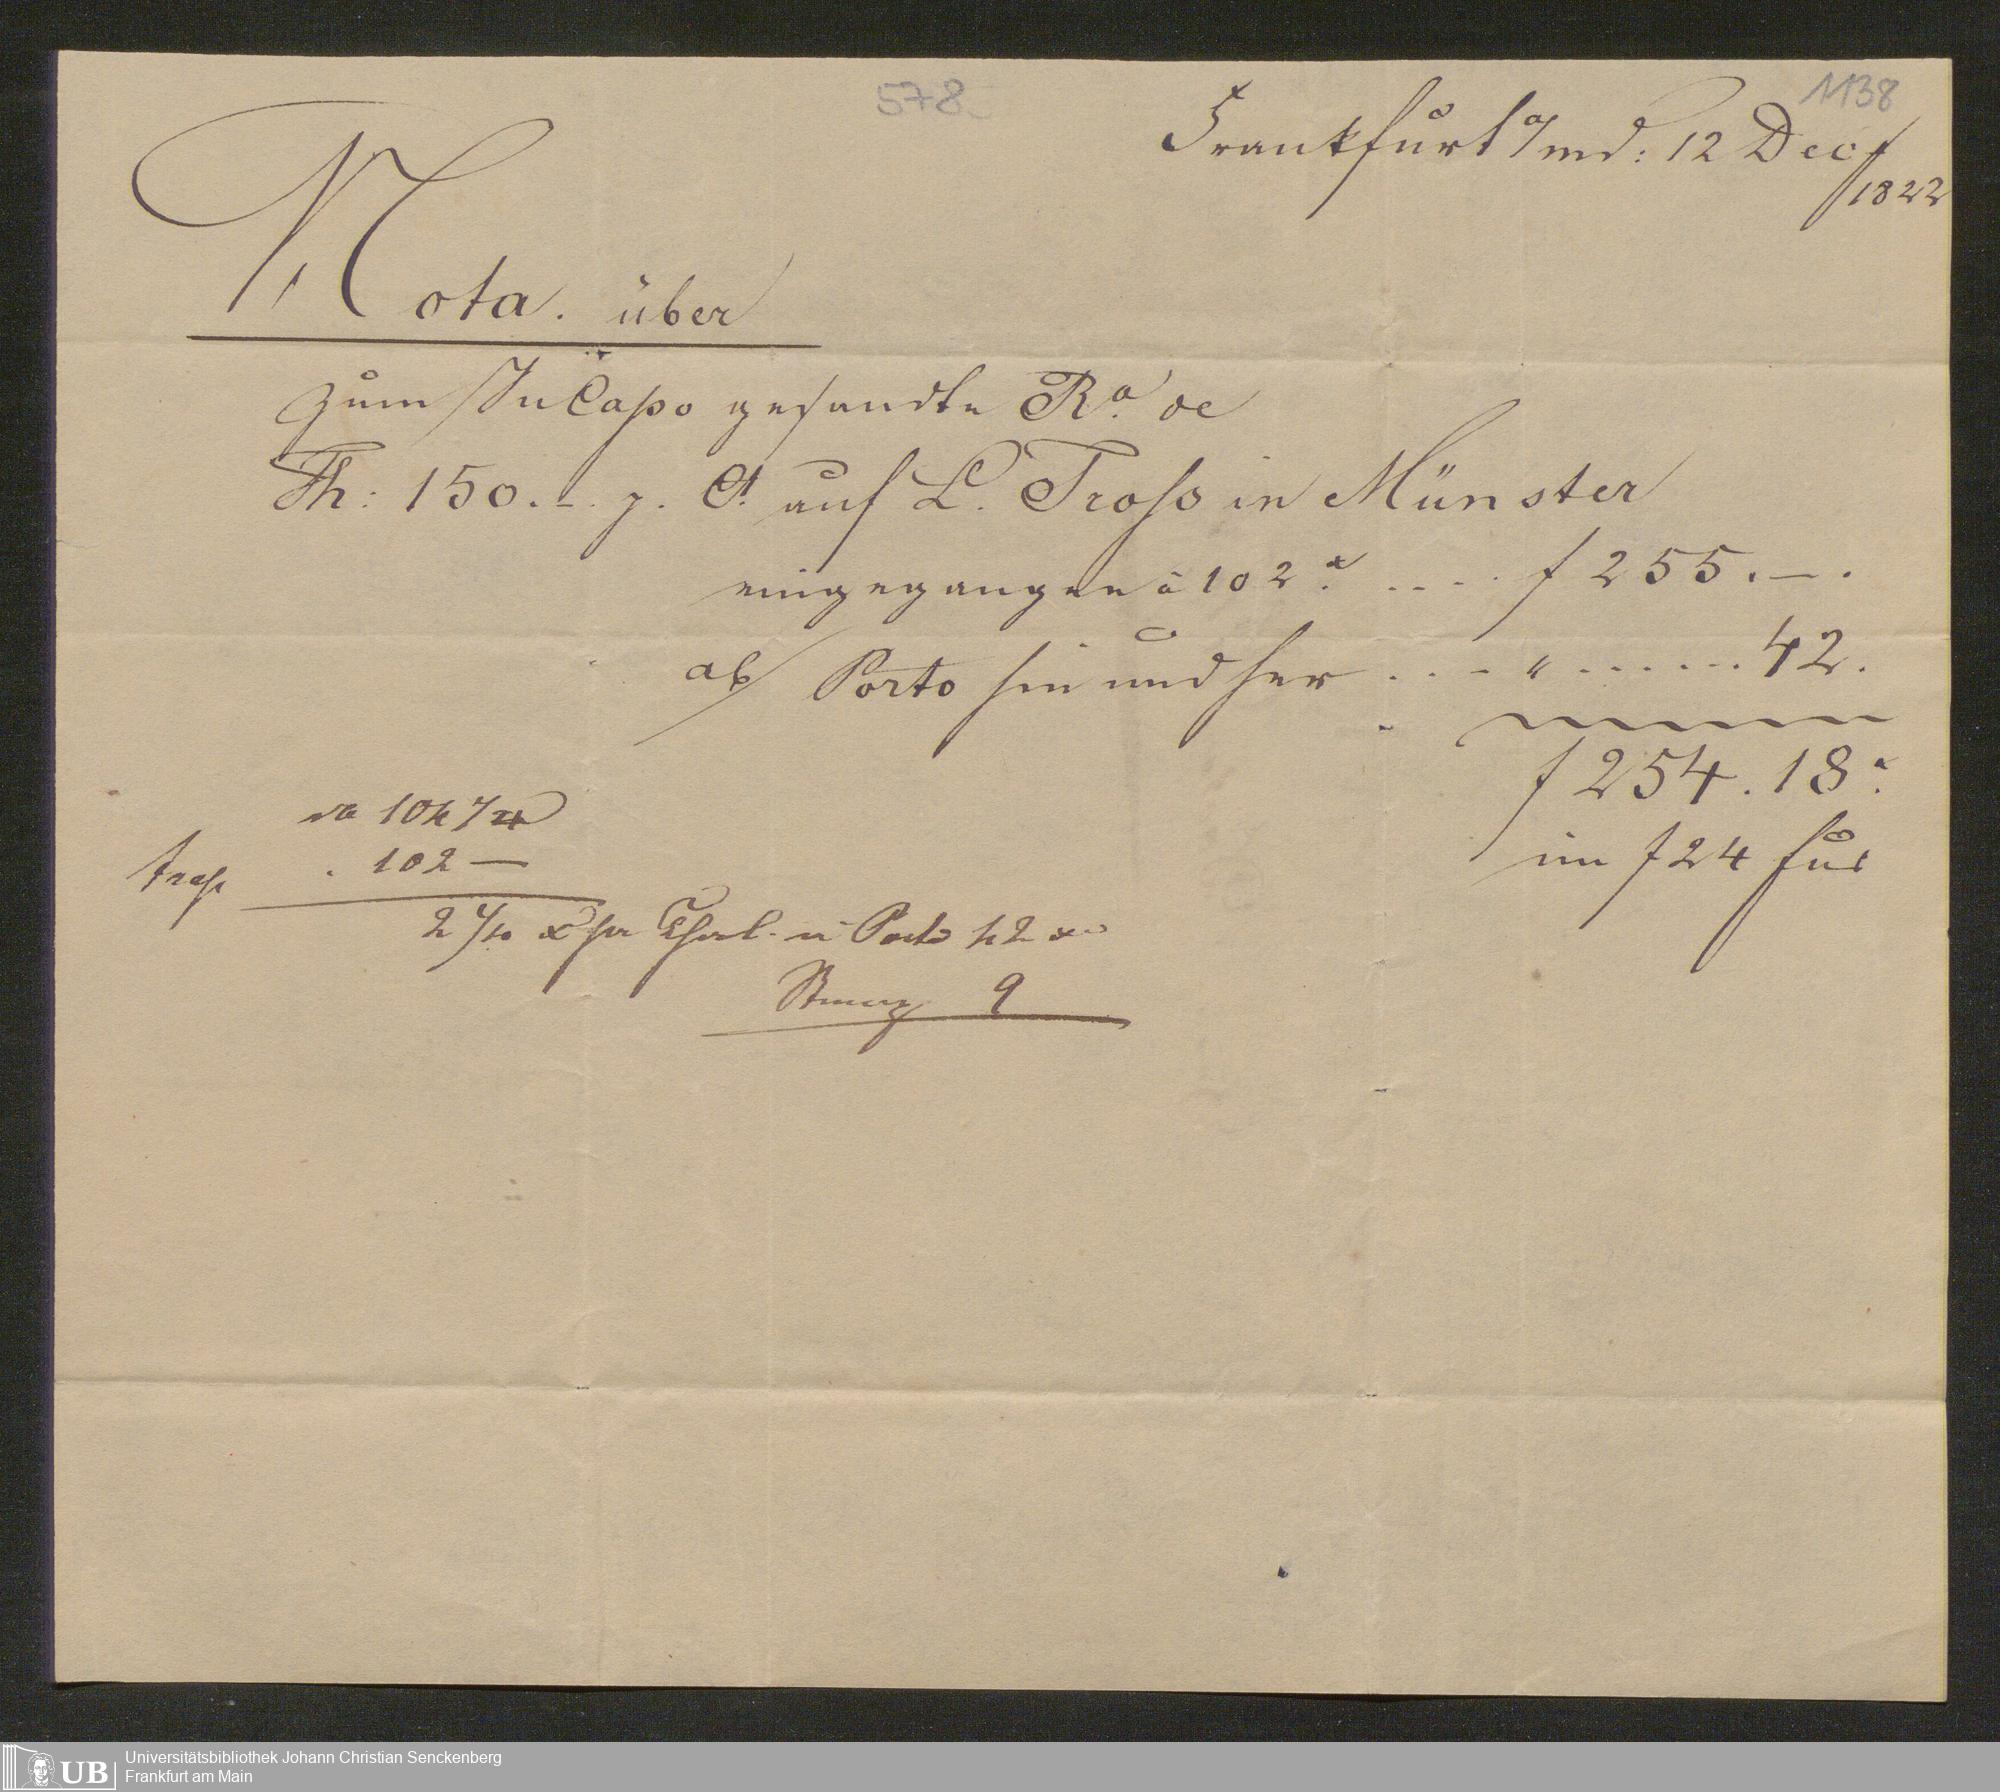 578
1138
Frankfurt a/m d: 12 Dec
1822
Nota. über
zum Incasso gesandte Ra. oe
Th: 150.–. p. Ct. auf L. Tross in Münster
eingegangen à 102 x. .... f 255.–.
ab Porto hin und her ... " ...... 42.
f 254. 18 x.
im f 24 fus
104 7/
102 —
2 7/10 x per Thal. u Porto 42 x
9
Universitätsbibliothek Johann Christian Senckenberg
Frankfurt am Main
UB